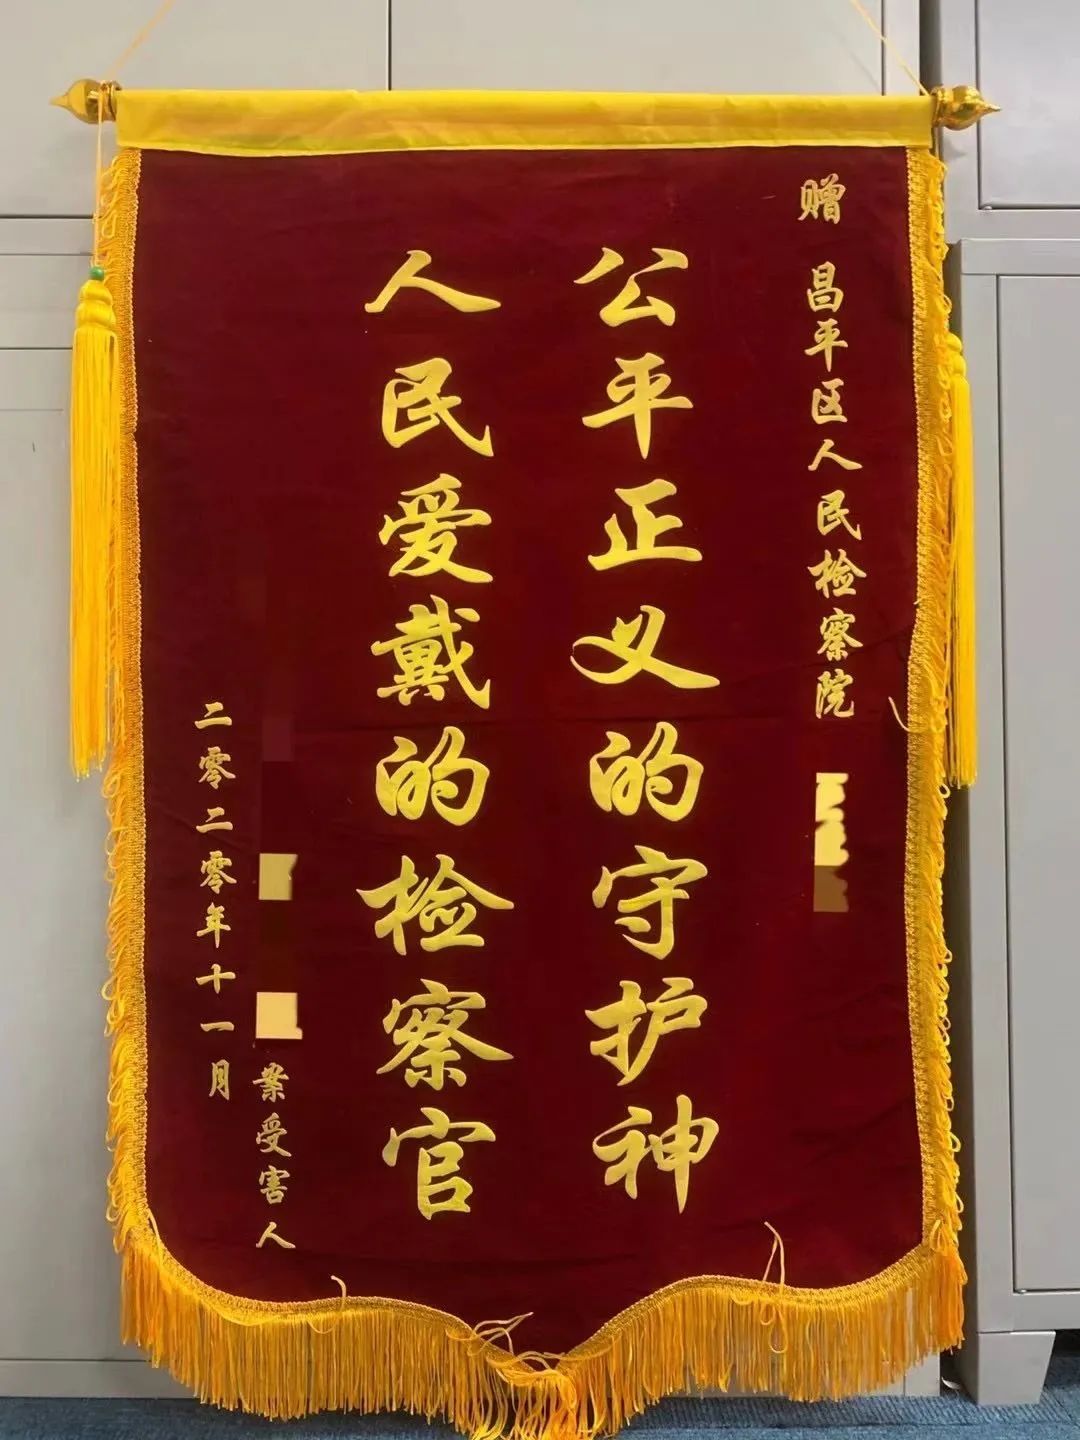 赠 昌平区人民检察院
公平正义的守护神
人民爱戴的检察官
案受害人
二零二零年十一月